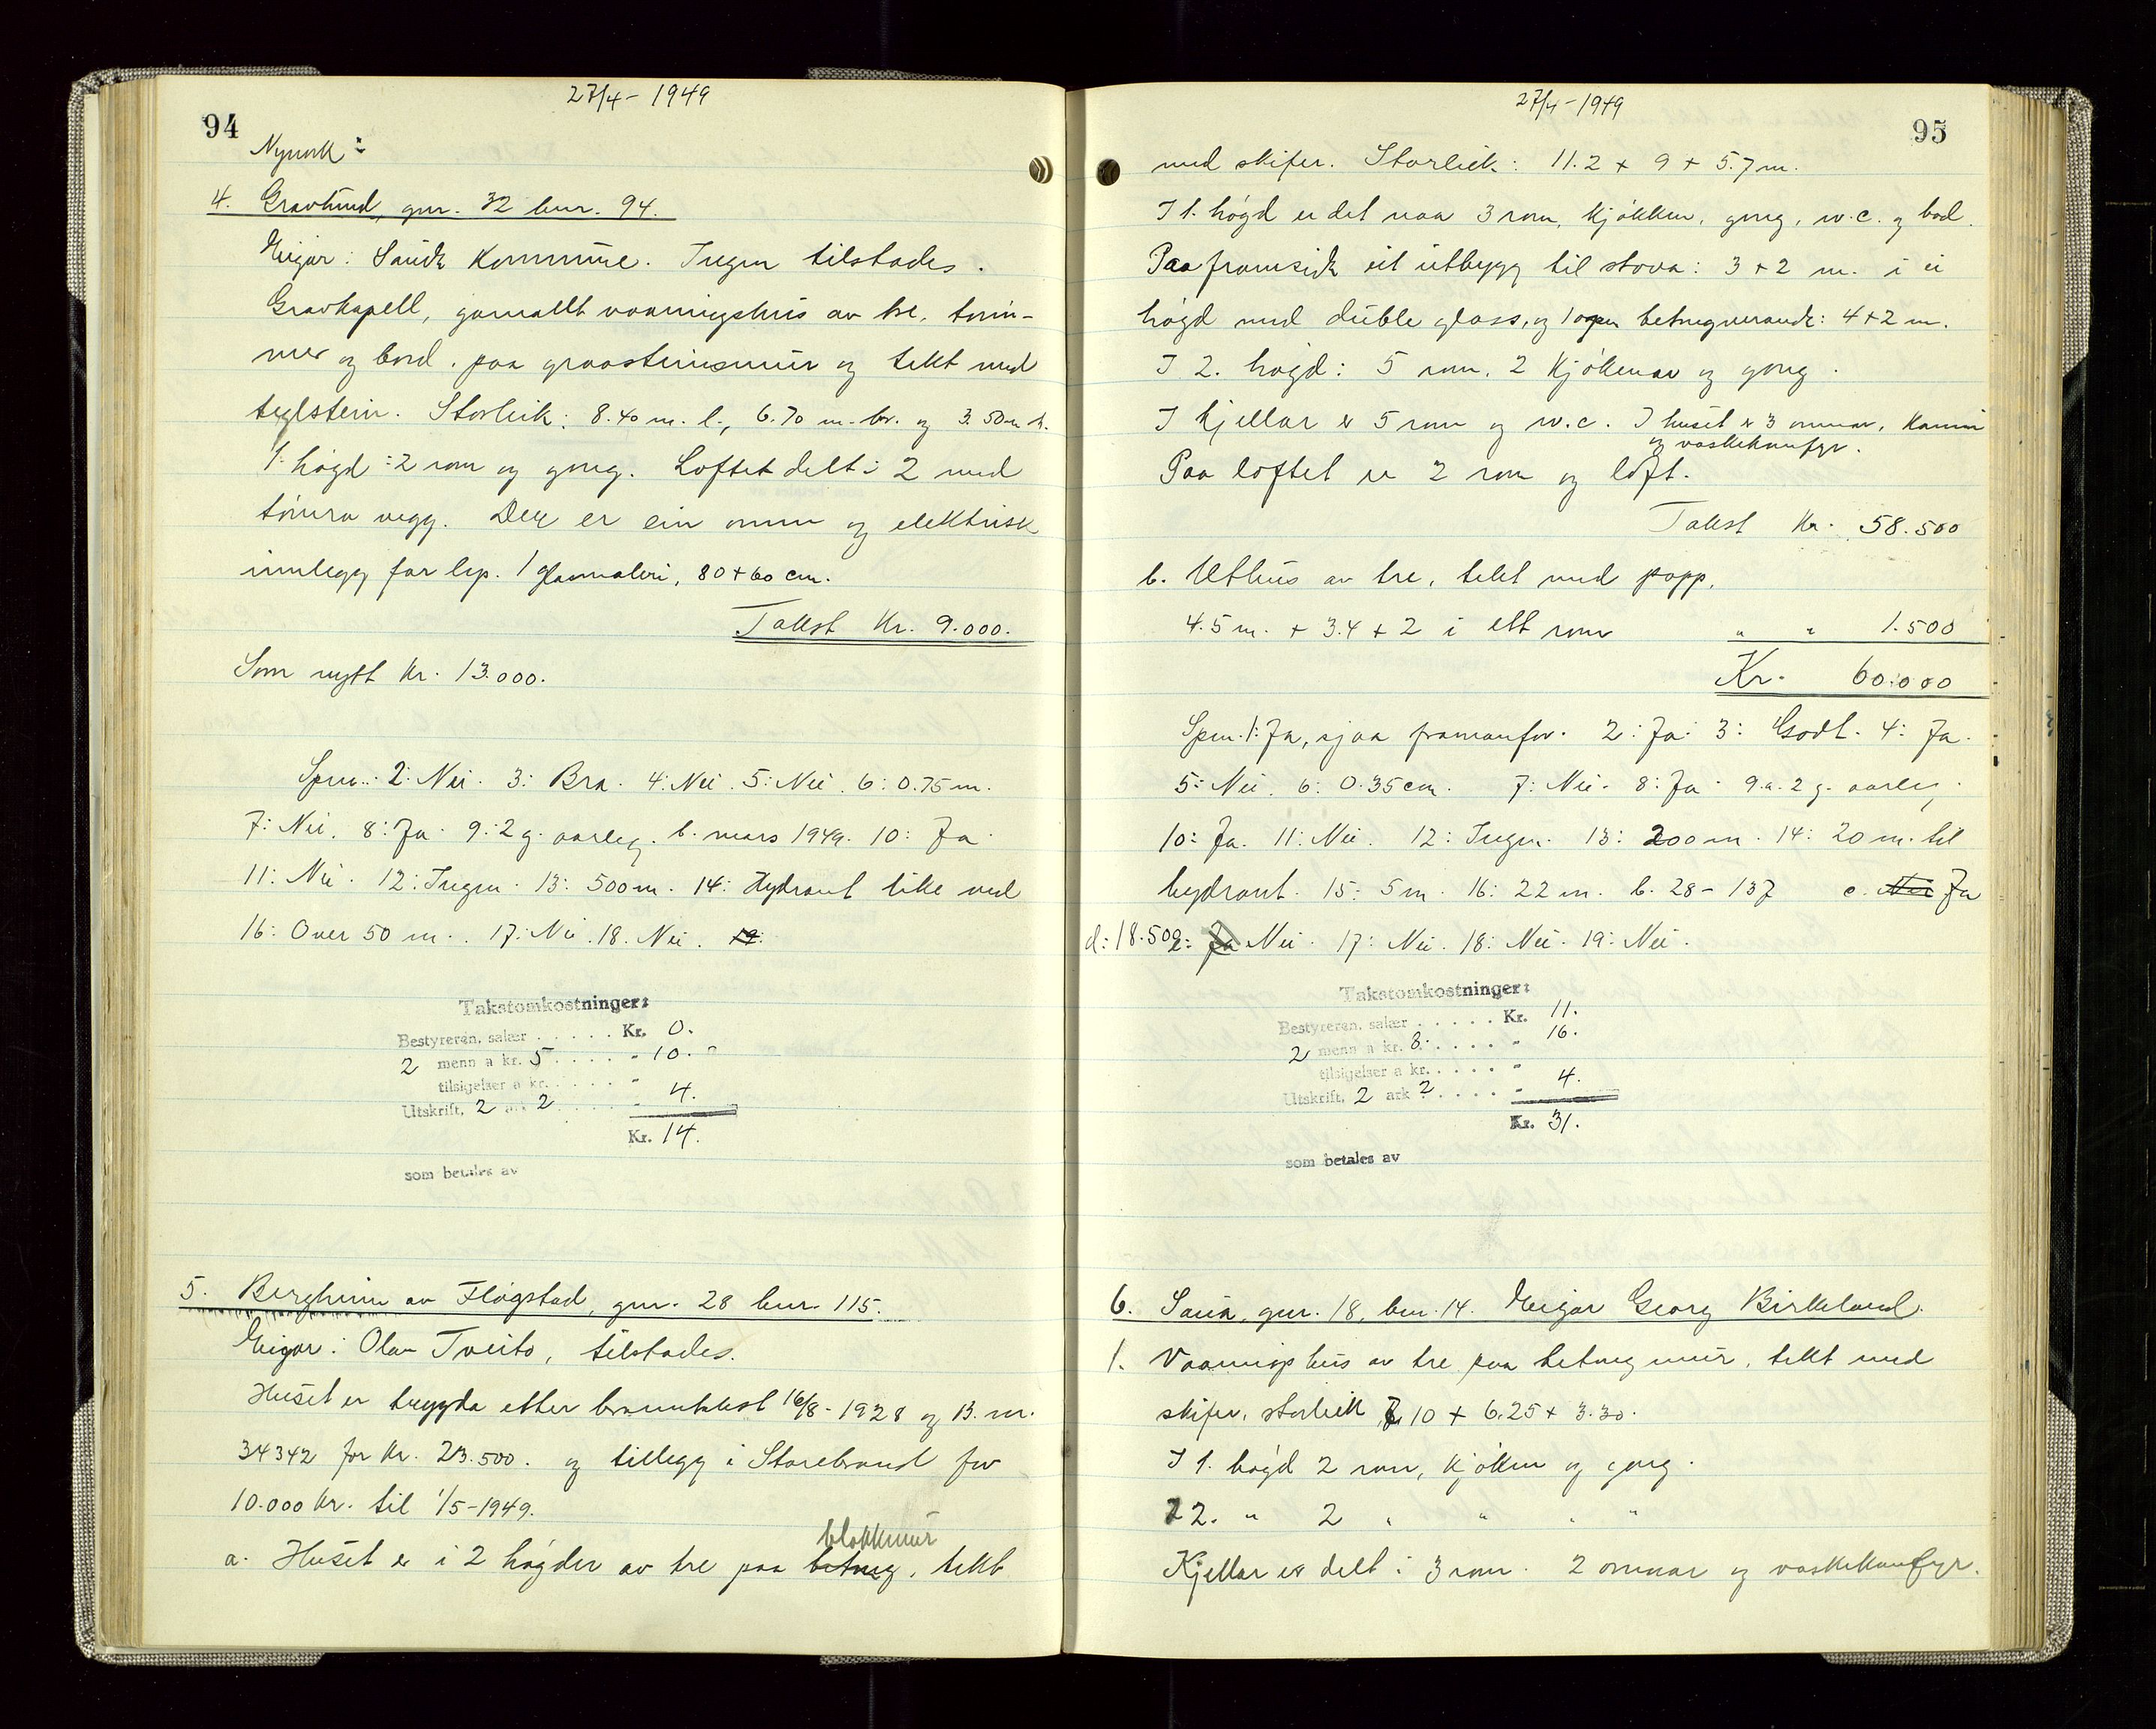 27/4 - 1949
94
4. Gravlund, gnr. 32 bnr. 94.
Eigar: Sauda Kommune. Ingen tilstades.
Gravkapell, gamallt vaaningshus av tre, tøm-
mer og bord, paa graasteinsmur og tekt med
teglstein. Storleik: 8.40 m. l., 6.70 m. br. og 3.50 m h.
1. høgd: 2 rom og gong. Loftet delt i 2 med
tømra vegg. Der er ein omn og elektrisk
innlegg for lys. 1 glasmaleri, 80 + 60 cm.
Takst Kr. 9.000.
Som nytt Kr. 13.000.
Spm.: 2: Nei. 3: Bra. 4: Nei. 5: Nei. 6: 0.75 m.
7: Nei. 8: Ja. 9: 2 g. aarleg. b. mars 1949. 10: Ja.
11: Nei. 12: Ingen. 13: 500 m. 14: Hydrant like ved
16: Over 50 m. 17: Nei. 18. Nei. 19:
Takstomkostninger:
Bestyreren, salær ...... Kr. 0.
2 menn a kr. 5 ..... " 10. "
tilsigelser a kr. ..... "
Utskrift, 2 ark 2 ..... " 4.
Kr. 14.
som betales av
5. Bergheim av Fløgstad, gnr. 28 bnr. 115.
Eigar: Olav Tveito, tilstades.
Huset er trygda etter branntakst 16/8 - 1928 og B. nr.
34342 for Kr. 23.500. og tillegg i Storebrand for
10.000 kr. til 1/5 - 1949.
blokkmur
a. Huset er i 2 høgder av tre paa betong, tekt
27/4 - 1949
95
med skifer. Storleik: 11.2 + 9 + 5.7 m.
I 1. høgd er det naa 3 rom, kjøkken, gong, w.c. og bad.
Paa framsida eit utbygg til stova: 3 + 2 m. i ei
høgd med duble glass, og 1 open betongveranda: 4 + 2 m.
I 2. høgd: 5 rom, 2 kjøkenar og gong.
I kjellar er 5 rom og w.c. I huset er 3 omnar, kamin
og vaskekomfyr.
Paa loftet er 2 rom og loft.
Takst Kr. 58.500
b. Uthus av tre, tekt med papp.
4.5 m. + 3.4 + 2 i ett rom " " 1.500
Kr. 60.000
Spm. 1: Ja, sjaa framanfor. 2: Ja. 3: Godt. 4: Ja.
5: Nei. 6: 0.35 cm. 7: Nei. 8: Ja. 9.a. 2 g. aarleg.
10: Ja. 11: Nei. 12: Ingen. 13: 200 m. 14: 20 m. til
hydrant. 15: 5 m. 16: 22 m. b. 28 - 137 c. Nei Ja
d: 18.500 e: Ja Nei. 17: Nei. 18: Nei. 19: Nei.
Takstomkostninger:
Bestyreren, salær ..... Kr. 11.
2 menn a kr. 8. .... " 16.
tilsigelser a kr. .... "
Utskrift, 2 ark 2 .... " 4.
Kr. 31.
som betales av
6. Saua, gnr. 18, bnr. 14. Eigar Georg Birkeland.
1. Vaaningshus av tre paa betongmur, tekt med
skifer, storleik 10 + 6.25 + 3.30.
I 1. høgd 2 rom, kjøken og gong.
I 2. " 2 " " " "
Kjellar er delt i 3 rom. 2 omnar og vaskekomfyr.